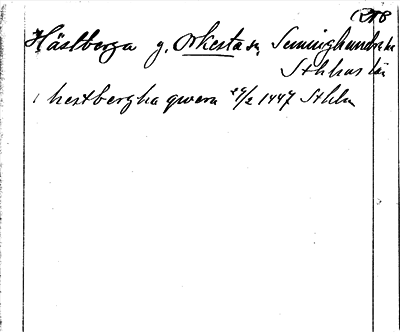 Hästberga g. Orkesta sn, Seminghundra hd
Sthlms län
i hestbergha qwern 24/2 1447 Sthlm